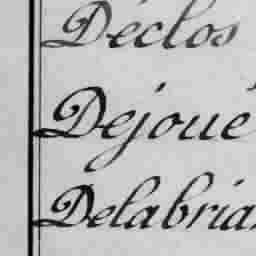 Déclos
Dejoué
Delabria